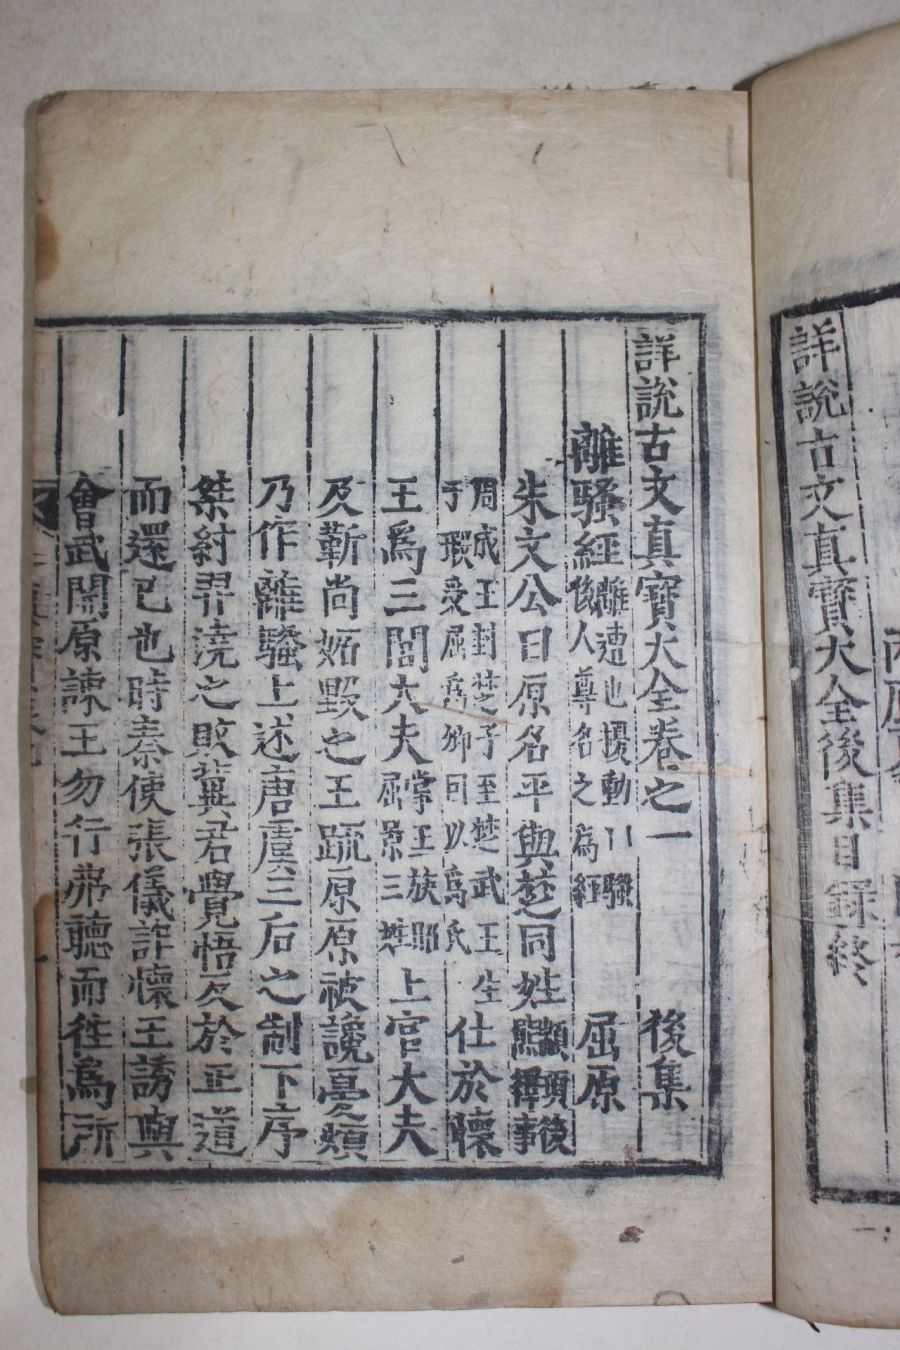 詳說古文真寶大全後集目錄終
詳說古文真寶大全卷之一 後集
離騷經 離遭也擾動曰騷後人尊名之爲經 屈原
朱文公曰原名平與楚同姓 顓頊後熊繹事
周成王封楚子至楚武王生子瑕受屈爲卿因以爲氏 仕於懷
王爲三閭大夫 掌王族昭屈景三姓 上官大夫
及靳尚妬毀之王疏原原被讒憂煩
乃作離騷上述唐虞三后之制下序
桀紂羿澆之敗冀君覺悟反於正道
而還已也時秦使張儀詐懷王誘與
會武關原諫王勿行弗聽而往爲所